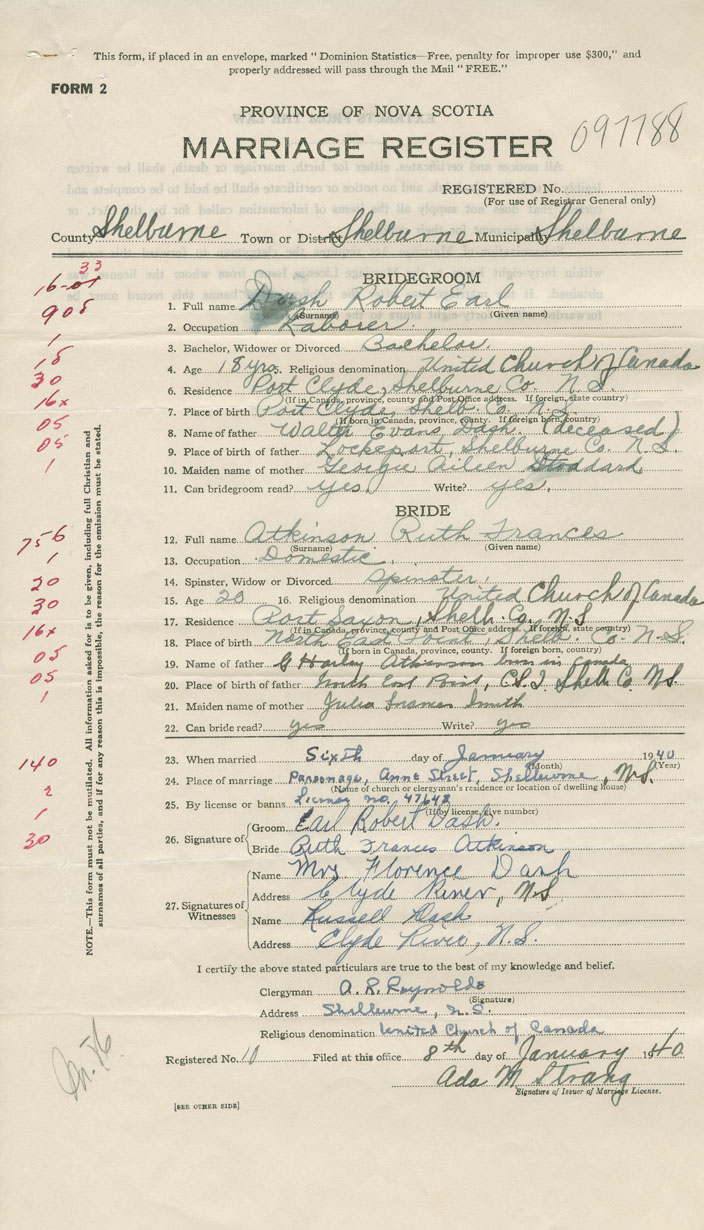 This form, if placed in an envelope, marked "Dominion Statistics—Free, penalty for improper use $300," and
properly addressed will pass through the Mail "FREE."
FORM 2
PROVINCE OF NOVA SCOTIA
MARRIAGE REGISTER 097788
REGISTERED No.
(For use of Registrar General only)
County Shelburne Town or District Shelburne Municipality Shelburne
BRIDEGROOM
1. Full name Dash Robert Earl
(Surname) (Given name)
2. Occupation Laborer.
3. Bachelor, Widower or Divorced Bachelor
4. Age 18 yrs. Religious denomination United Church of Canada
6. Residence Port Clyde, Shelburne Co. N.S.
(If in Canada, province, county and Post Office address. If foreign, state country)
7. Place of birth Port Clyde, Shelb. Co. N.S.
(If born in Canada, province, county. If foreign born, country)
8. Name of father Walter Evans Dash. (deceased)
9. Place of birth of father Lockeport, Shelburne Co. N.S.
10. Maiden name of mother Georgie Aileen Stoddard
11. Can bridegroom read? yes. Write? yes.
BRIDE
12. Full name Atkinson Ruth Frances
(Surname) (Given name)
13. Occupation Domestic.
14. Spinster, Widow or Divorced Spinster.
15. Age 20 16. Religious denomination United Church of Canada
17. Residence Port Saxon, Shelb. Co. N.S
(If in Canada, province, county and Post Office address. If foreign, state country)
18. Place of birth North East Point, Shelb. Co. N.S.
(If born in Canada, province, county. If foreign born, country)
19. Name of father G Harley Atkinson born in Canada
20. Place of birth of father North East Point, C.S.I. Shelb Co N.S.
21. Maiden name of mother Julia Frances Smith
22. Can bride read? yes Write? yes
23. When married Sixth day of January 1940
(Month) (Year)
24. Place of marriage Parsonage, Anne Street, Shelburne, N.S.
(Name of church or clergyman's residence or location of dwelling house)
25. By license or banns License no. 47648
(If by license, give number)
26. Signature of Groom Earl Robert Dash.
Bride Ruth Frances Atkinson
27. Signatures of Witnesses
Name Mrs Florence Dash
Address Clyde River, N.S
Name Russell Dash
Address Clyde River, N.S.
I certify the above stated particulars are true to the best of my knowledge and belief.
Clergyman A. R. Reynolds
(Signature)
Address Shelburne, N.S.
Religious denomination United Church of Canada
Registered No. 10 Filed at this office 8th day of January 1940
Ada M Strang
Signature of Issuer of Marriage License.
[SEE OTHER SIDE]
NOTE.—This form must not be mutilated. All information asked for is to be given, including full Christian and
surnames of all parties, and if for any reason this is impossible, the reason for the omission must be stated.
33
905
1
18
30
16x
05
05
1
756
1
20
30
16x
05
05
1
140
2
1
30